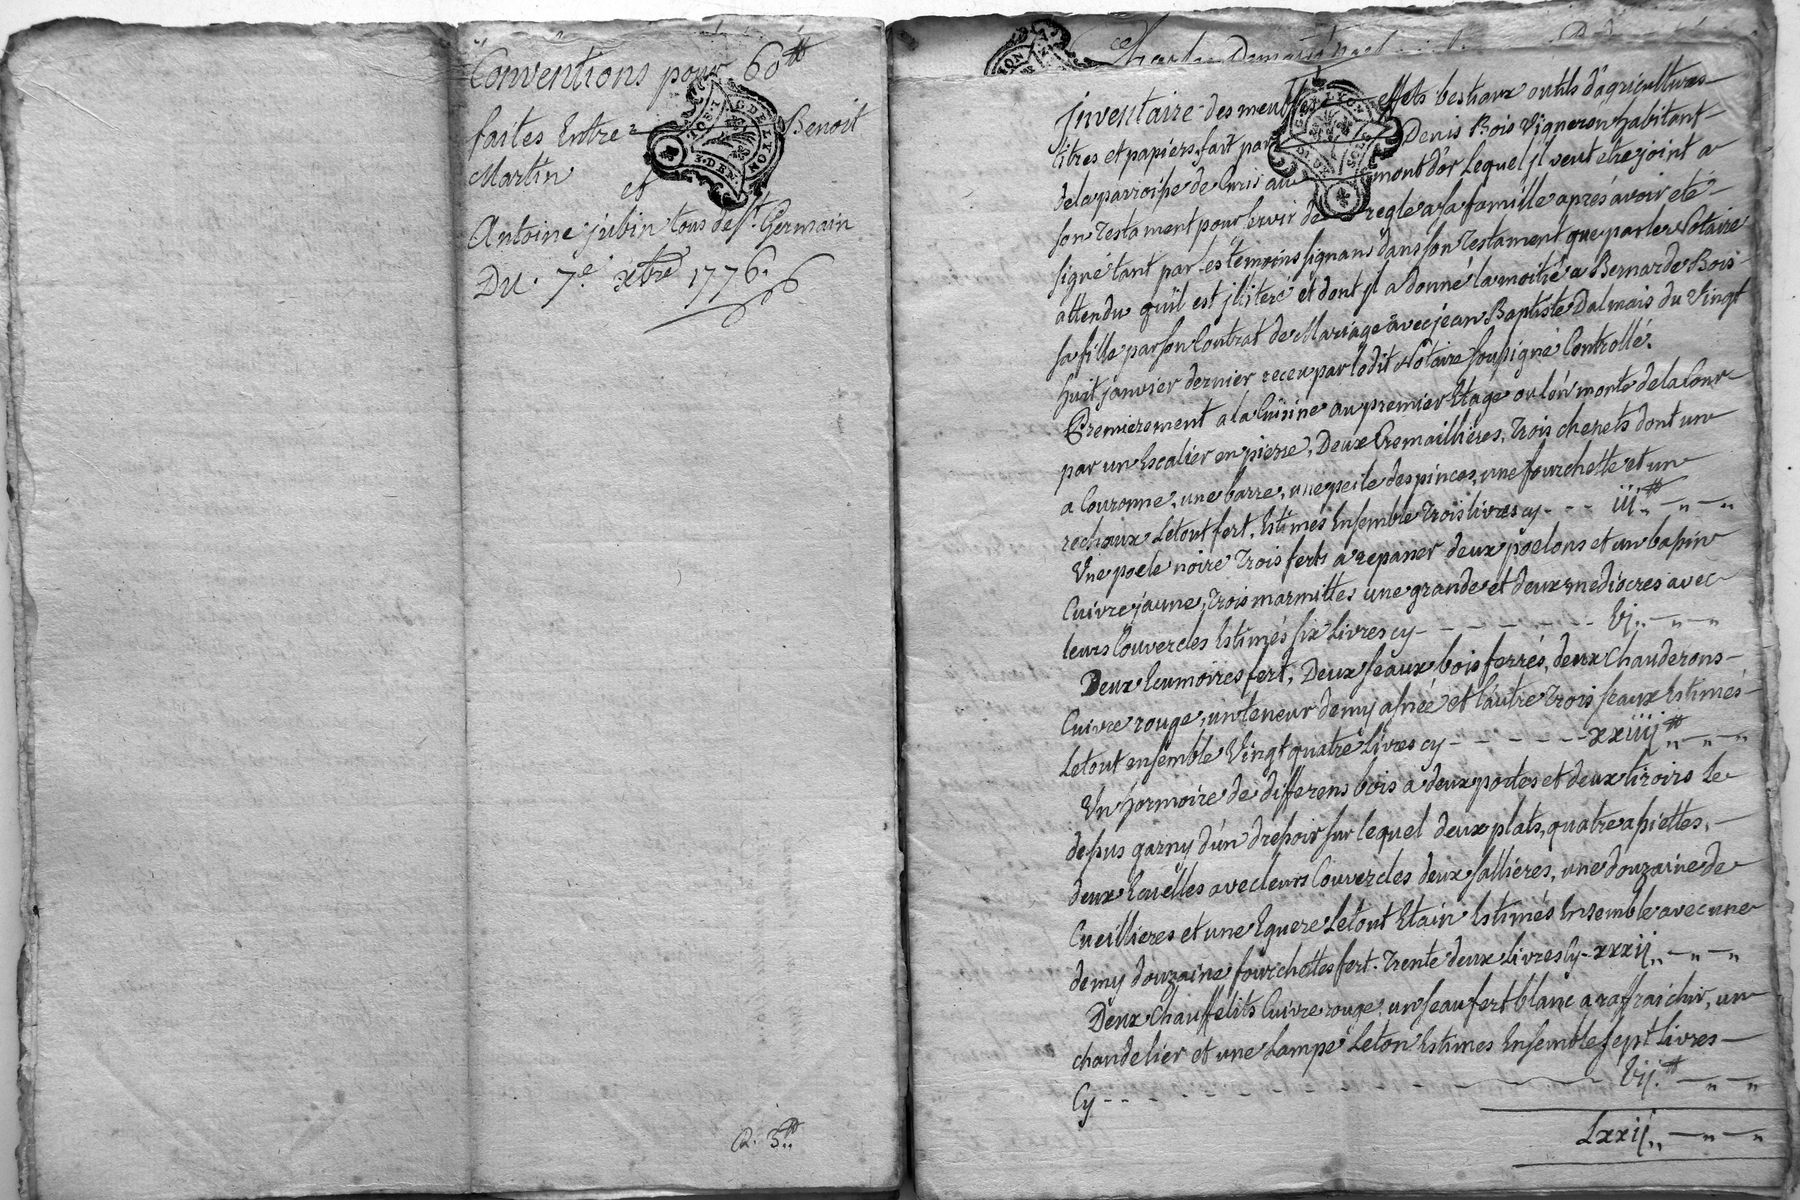 Conventions pour 60ᵗᵗ
faites Entre Benoit
Martin et
Antoine jubin tous de Sᵗ Germain
Du. 7ᵉ. xbre 1776.
Q. 3ᵗᵗ
G. DE LYON
3. DEN
Inventaire des meubles effets bestiaux outils d'agricultures
titres et papiers fait par Denis Bois Vigneron habitant
de la parroisse de Curis au mont d'or Lequel jl veut etre joint a
son Testament pour servir de regle a sa famille après avoir eté
signé tant par les temoins signans dans son Testament que par le Notaire
attendu qu'il est jliteré et dont jl a Donné la moitié a Bernarde Bois
sa fille par son Contrat de Mariage avec jean Baptiste Dalmais du Vingt
huit janvier dernier receu par ledit Notaire soussigné Controllé.
Premierement a la Cuisine au premier Etage ou l'on monte de la Cour
par un Escalier en pierre, Deux Cremaillieres, Trois chenets dont un
a Couronne, une barre, une pele des pinces, une fourchette et un
rechaux Le tout fert, Estimés Ensemble Trois livres cy - - - iijᵗᵗ
Une poele noire Trois ferts a repasser deux poelons et un bassin
Cuivre jaune, Trois marmittes une grande et deux mediocres avec
leurs Couvercles Estimés six Livres cy - - - - - - - Vj
Deux Ecumoires fert, Deux seaux bois ferrés, deux Chauderons
Cuivre rouge, un teneur demy asnée et l'autre Trois seaux Estimés
Le tout ensemble Vingt quatre Livres cy - - - - - - xxiiijᵗᵗ
Un hormoire de differens bois a deux portes et deux tiroirs Le
dessus garny d'un dressoir sur lequel deux plats, quatre assiettes,
deux Ecuelles avec leurs Couvercles deux sallieres, une douzaine de
Cueillieres et une Eguere Le tout Etain Estimés Ensemble avec une
demy douzaine fourchettes fert. Trente deux Livres Cy - xxxij
Deux Chauffélits Cuivre rouge, un seau fert blanc a raffraichir, un
chandelier et une Lampe Leton Estimés Ensemble sept Livres
Cy - - - - - - - - Vijᵗᵗ
Lxxij